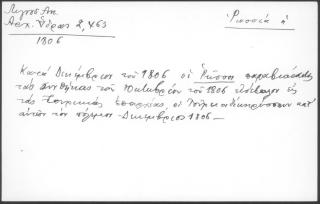 Λιγνός Αντ.
Αρχ. Ύδρας 2, 453
1806
Ρωσσία
Κατά Δεκέμβριον τοῦ 1806 οἱ Ρῶσοι παραβιάσαντες
τάς συνθήκας τοῦ Ὀκτωβρίου τοῦ 1806 εἰσέβαλον εἰς
τάς Τουρκικάς ἐπαρχίας, οἱ Τοῦρκοι ἐκήρυξαν κατ'
αὐτῶν τόν πόλεμον - Δεκέμβριος 1806 -